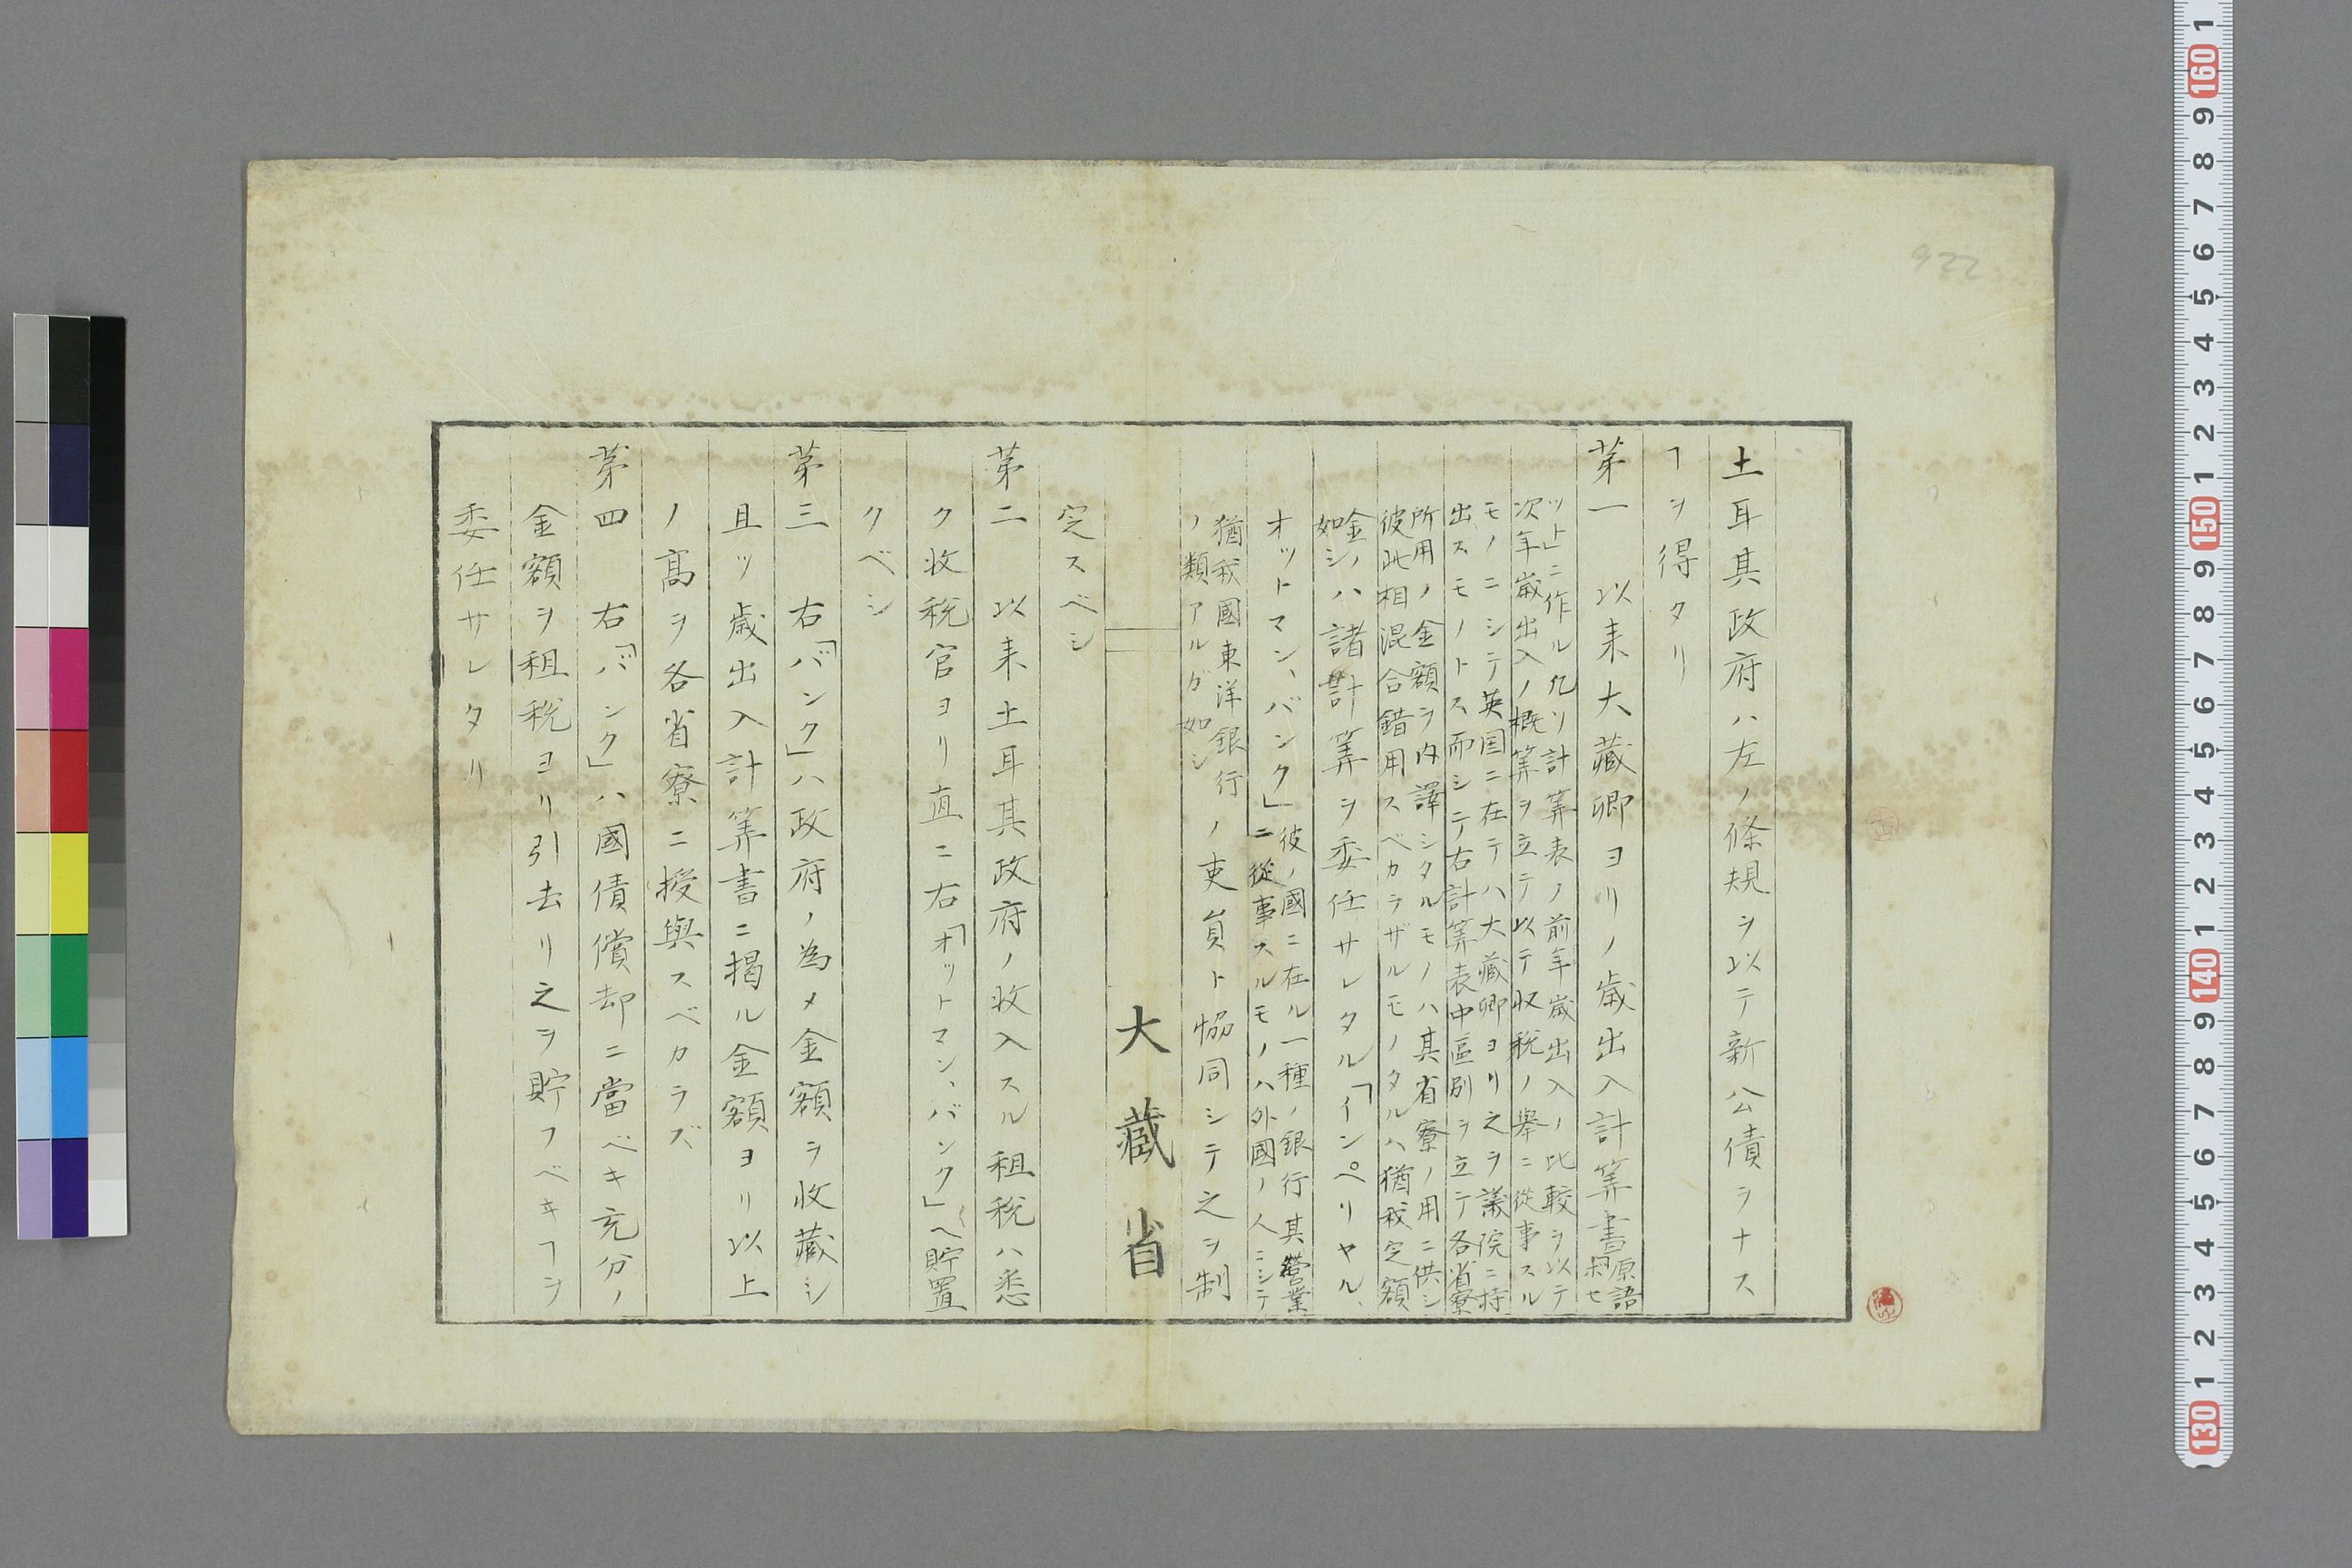 土耳其政府ハ左ノ條規ヲ以テ新公債ヲナス
ヿヲ得タリ
第一　以来大藏卿ヨリノ歳出入計算書原語
ット」ニ作ル凡ソ計算表ノ前年歳出入ノ比較ヲ以テ
次年歳出入ノ概算ヲ立テ以テ収税ノ擧ニ從事スル
モノニシテ英国ニ在テハ大藏卿ヨリ之ヲ議院ニ持
出スモノトス而シテ右計算表中區別ヲ立テ各省寮
所用ノ金額ヲ内譯シタルモノハ其省寮ノ用ニ供シ
彼此相混合錯用スベカラザルモノタルハ猶我定額
金ノ
如シ
ハ諸計算ヲ委任サレタル「インペリヤル、
オットマン、バンク」
彼ノ國ニ在ル一種ノ銀行其營業
ニ從事スルモノハ外國ノ人ニシテ
猶我國東洋銀行
ノ類アルガ如シ
ノ吏員ト協同シテ之ヲ制
大藏省
定スベシ
第二　以来土耳其政府ノ收入スル租税ハ悉
ク收税官ヨリ直ニ右「オットマン、バンク」ヘ貯置
クベシ
第三　右「バンク」ハ政府ノ為メ金額ヲ收藏シ
且ツ歳出入計算書ニ揭ル金額ヨリ以上
ノ高ヲ各省寮ニ授與スベカラズ
第四　右「バンク」ハ國債償却ニ當ベキ充分ノ
金額ヲ租税ヨリ引去リ之ヲ貯フベキヿヲ
委任サレタリ
922